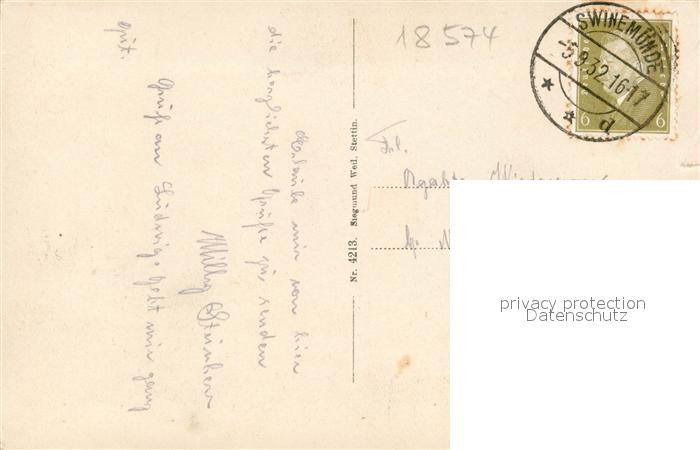 18574
SWINEMÜNDE
-5.9.32.16-17
* * d
6 6
Erlaube mir von hier
die herzlichsten Grüße zu senden
Willy
Gruß an Ludwig. Geht mir ganz
gut.
Nr. 4213. Siegmund Weil, Stettin.
Frl.
privacy protection
Datenschutz